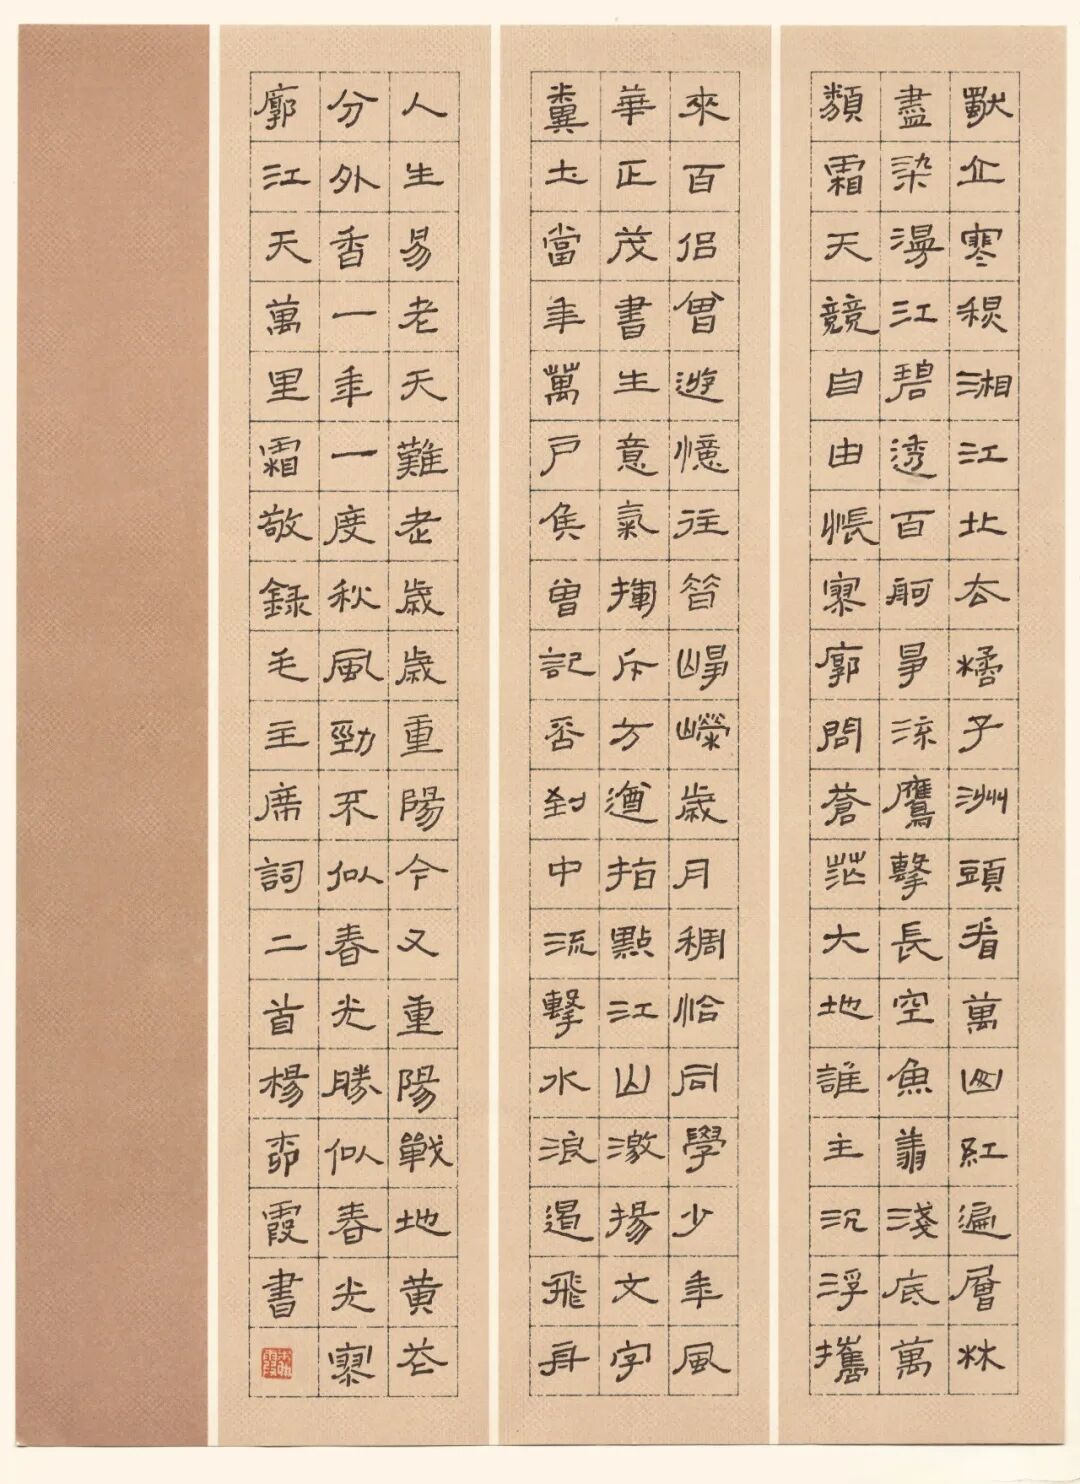 獨立寒秋湘江北去橘子洲頭看萬山紅遍層林
盡染漫江碧透百舸爭流鷹擊長空魚翔淺底萬
類霜天競自由悵寥廓問蒼茫大地誰主沉浮攜
來百侶曾遊憶往昔崢嶸歲月稠恰同學少年風
華正茂書生意氣揮斥方遒指點江山激揚文字
糞土當年萬戶侯曾記否到中流擊水浪遏飛舟
人生易老天難老歲歲重陽今又重陽戰地黃花
分外香一年一度秋風勁不似春光勝似春光寥
廓江天萬里霜敬錄毛主席詞二首楊霞書